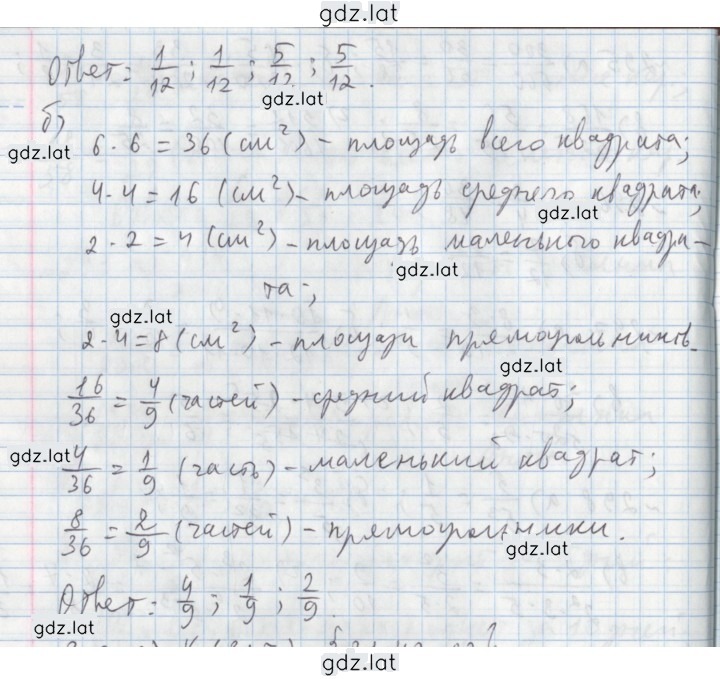 gdz.lat
Ответ: 1/12; 1/12; 5/12; 5/12.
gdz.lat
б)
6 · 6 = 36 (см²) – площадь всего квадрата;
gdz.lat
4 · 4 = 16 (см²) – площадь среднего квадрата;
gdz.lat
2 · 2 = 4 (см²) – площадь маленького квадра-
gdz.lat
та;
gdz.lat
2 · 4 = 8 (см²) – площади прямоугольников.
gdz.lat
16/36 = 4/9 (частей) – средний квадрат;
gdz.lat
4/36 = 1/9 (часть) – маленький квадрат;
8/36 = 2/9 (частей) – прямоугольники.
gdz.lat
Ответ: 4/9; 1/9; 2/9.
gdz.lat
gdz.lat